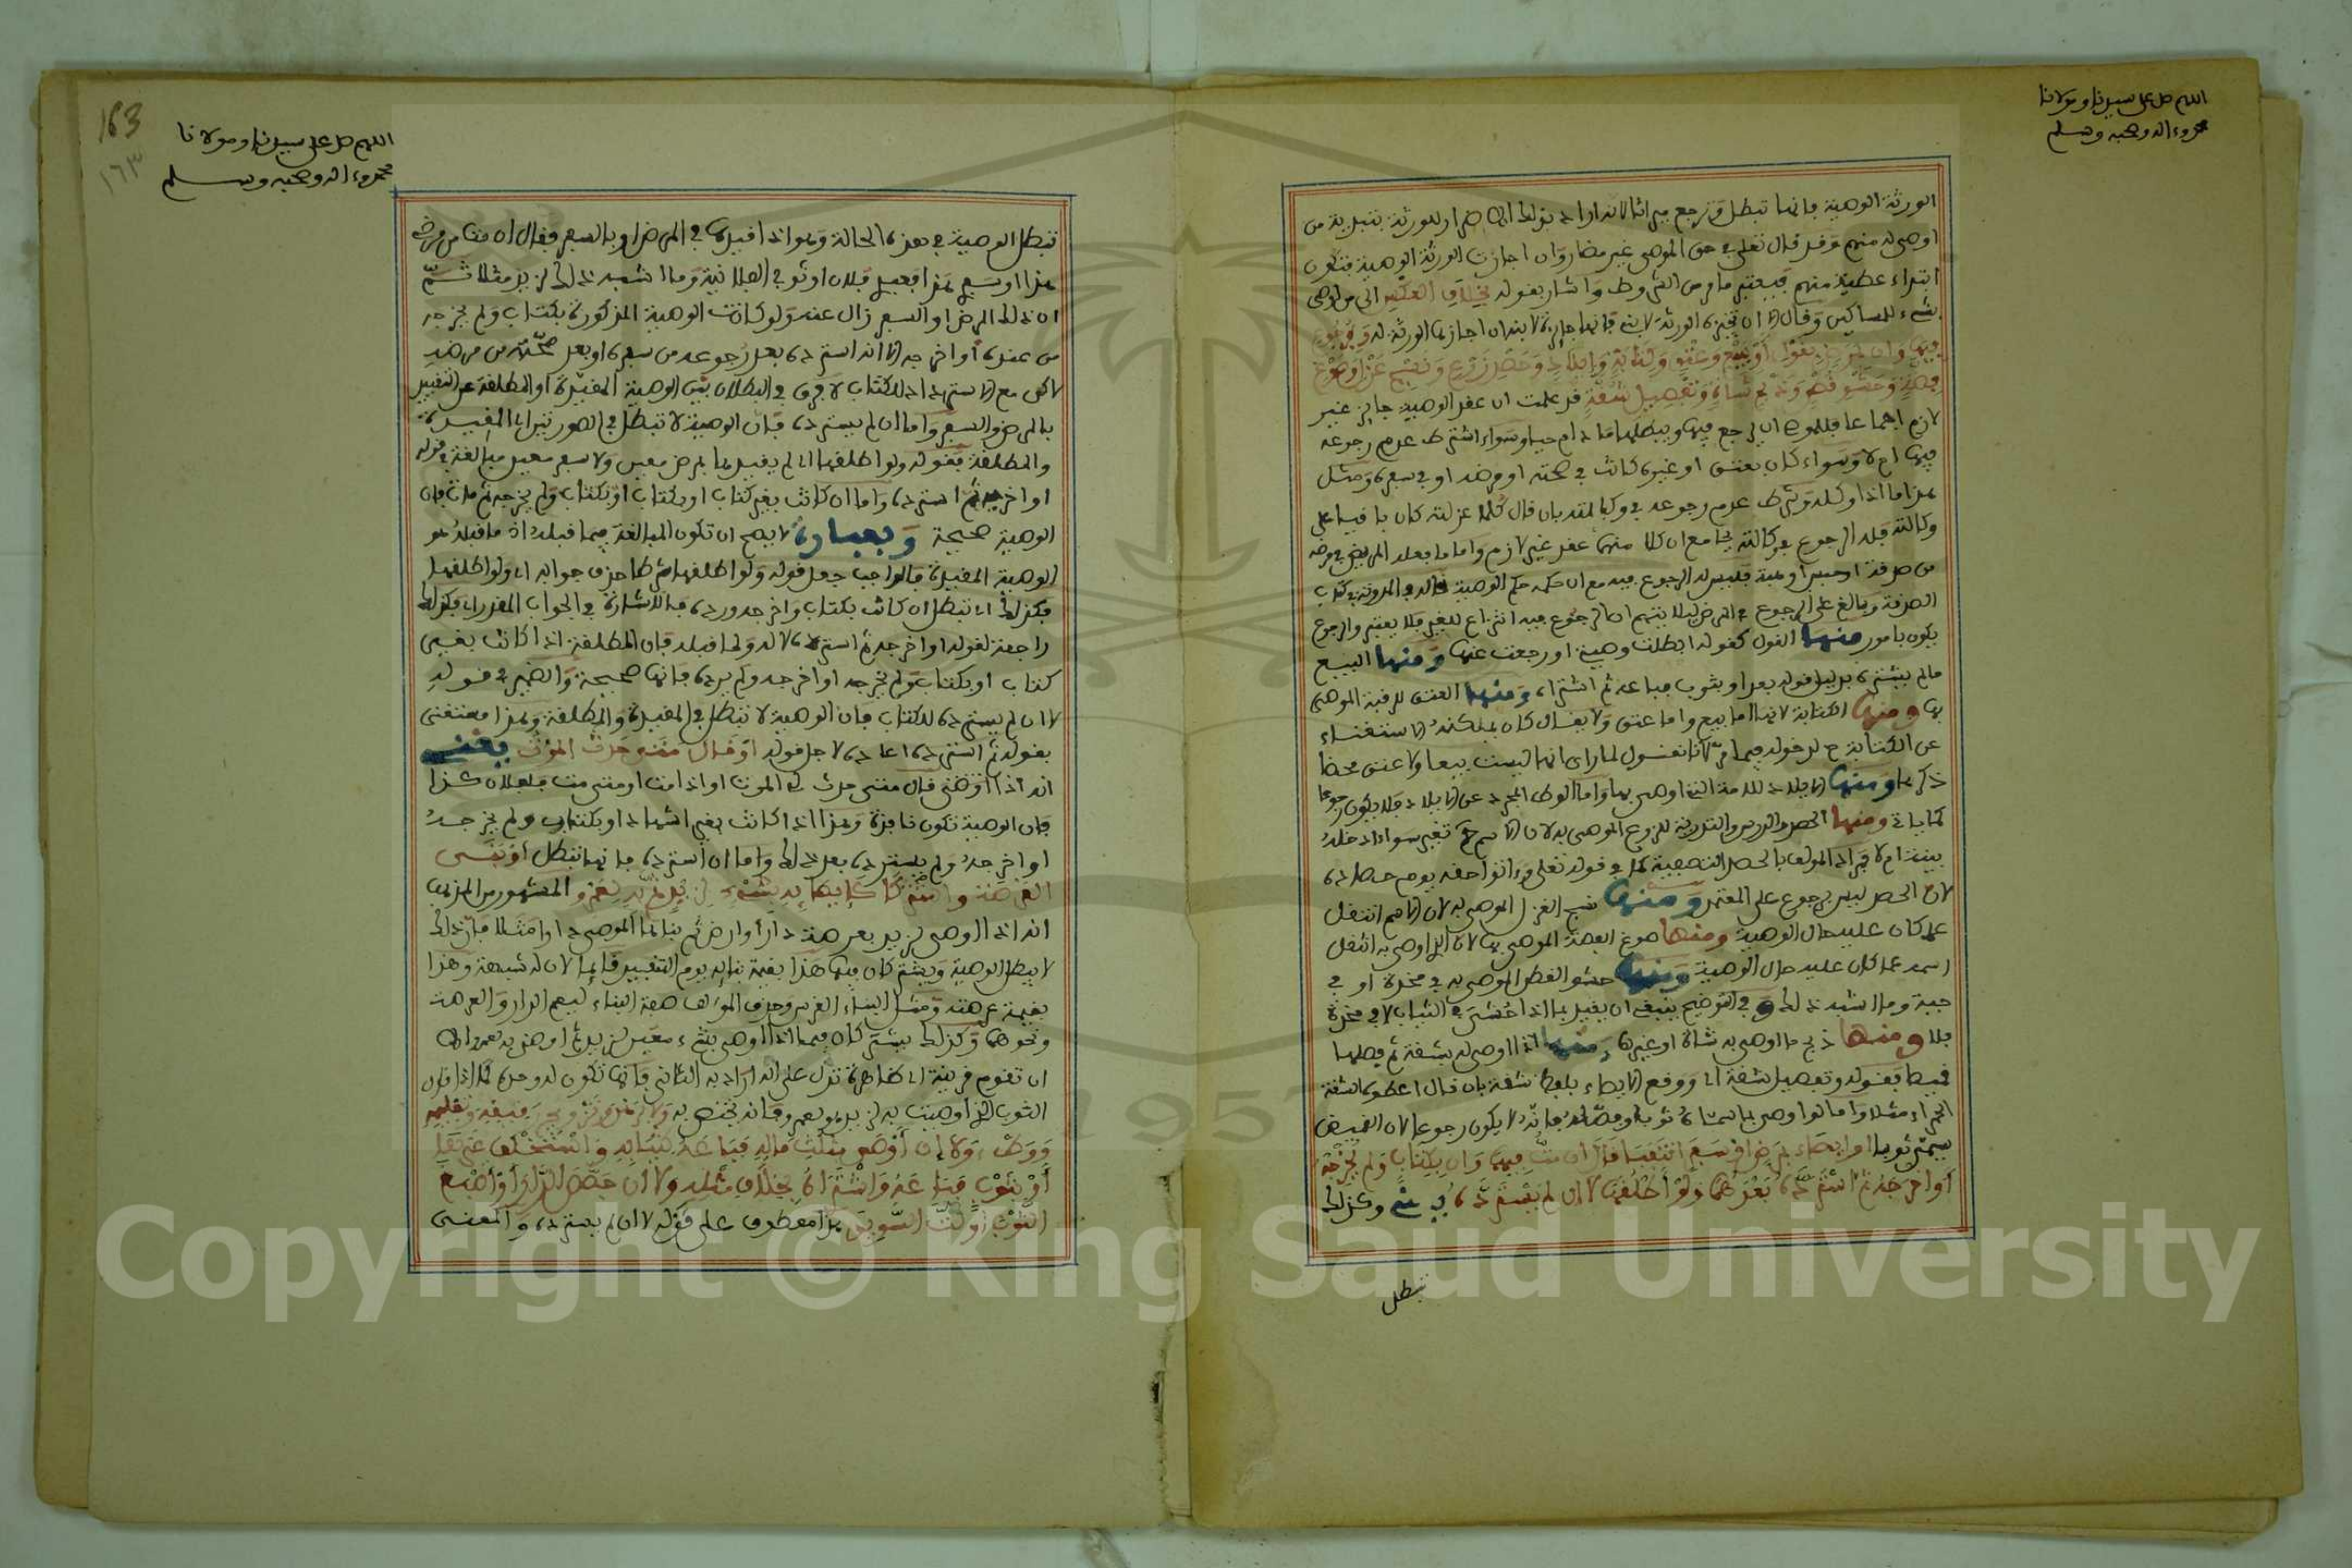 اللهم صل على سيدنا ومولانا
محمد وءاله وصحبه وسلم
الورثة الوصية فانها تبطل وترجع ميراثا لانه اراد بذلك الضرار للورثة بتبدية من
اوصى له منهم وقد قال تعلى في حق الموصي غير مضار وان اجازت الورثة الوصية فتكون
ابتداء عطية منهم فيعتبر ما مر من الشروط واشار بقوله بخلاف العكس الى من اوصى
بشيء للمساكين وقال ان لم يجزه الورثة لابني فانها جايزة لابنه ان اجازها الورثة له وبرجوع
فيها وان بمرض بقول او بيع وعتق وكتابة وايلاد وحصد زرع ونسج غزل وصوغ
فضة وحشو قطن وذبح شاة وتفصيل شقة قد علمت ان عقد الوصية جايز غير
لازم اجماعا فللموصي ان يرجع فيها ويبطلها ما دام حيا وسواء اشترط عدم رجوعه
فيها ام لا وسواء كان بعتق او غيره كانت في صحته او مرضه او في سفره ومثل
هذا ما اذا وكله وشرط عدم رجوعه في وكالته بان قال كلما عزلته كان باقيا على
وكالته فله الرجوع في وكالته بجامع ان كلا منهما عقد غير لازم واما ما فعله المريض في مرضه
من صدقة او حبس او هبة فليس له الرجوع فيه مع ان حكمه حكم الوصية قاله في المدونة في كتاب
الصدقة وبالغ على الرجوع في المرض ليلا يتوهم ان الرجوع فيه انتزاع للغير فلا يعتبر والرجوع
يكون بامور منها القول كقوله ابطلت وصيتي او رجعت عنها ومنها البيع
ما لم يشتره بدليل قوله بعد او بثوب فباعه ثم اشتراه ومنها العتق للرقبة الموصى
بها ومنها الكتابة لانها اما بيع واما عتق ولا يقال كان يمكنه الاستغناء
عن الكتابة لدخوله فيما مر لانا نقول لما راى انها ليست بيعا ولا عتق محضا
ذكرها ومنها الايلاد للامة التي اوصى بها واما الوطء المجرد عن الايلاد فلا يكون رجوعا
كما ياتي ومنها الحصد والدرس والتذرية للزرع الموصى به لان الاسم تغير سواء ادخله
بيته ام لا فمراد المولف بالحصد التصفية كما في قوله تعلى وءاتوا حقه يوم حصاده
لان الحصد ليس برجوع على المعتمد ومنها نسج الغزل الموصى به لان الاسم انتقل
عما كان عليه حال الوصية ومنها صوغ الفضة الموصى بها لان الذي اوصى به انتقل
اسمه عما كان عليه حال الوصية ومنها حشو القطن الموصى به في مخدة او في
جبة وما اشبه ذلك وفي التوضيح ينبغي ان يقيد بما اذا حشي في الثياب لا في مخدة
فلا ومنها ذبح ما اوصى به شاة او غيرها ومنها اذا اوصى له بشقة ثم فصلها
قميصا بقوله وتفصيل شقة اي ووقع الايصاء بلفظ شقة بان قال اعطوه الشقة
الحمراء مثلا واما لو اوصى بما سماه ثوبا وفصله فانه لا يكون رجوعا لان القميص
يسمى ثوبا او ايصاء بمرض او سفر انتفيا قال ان مت فيهما وان بكتاب ولم يخرجه
او اخرجه ثم استرده بعدهما ولو اطلقها لا ان لم يسترده ش وكذلك
تبطل
163
١٦٣
اللهم صل على سيدنا ومولانا
محمد وءاله وصحبه وسلم
تبطل الوصية في هذه الحالة وهو اذا قيدها في المرض او بالسفر فقال ان مت من مرضي
هذا او سفري هذا فعبدي لفلان او ثوبي الفلانية وما اشبه ذلك لزيد مثلا ثم
ان ذلك المرض او السفر زال عنه ولو كانت الوصية المذكورة بكتاب ولم يخرجه
من عنده او اخرجه الا انه استرده بعد رجوعه من سفره او بعد صحته من مرضه
لاكن مع الاسترداد للكتاب لا فرق في البطلان بين الوصية المقيدة او المطلقة عن التقييد
بالمرض والسفر واما ان لم يسترده فان الوصية لا تبطل في الصورتين اي المقيدة
والمطلقة فقوله ولو اطلقها اي لم يقيدها بمرض معين ولا سفر معين مبالغة في قوله
او اخرجه ثم استرده واما ان كانت بغير كتاب او بكتاب ولم يخرجه ثم مات فان
الوصية صحيحة وبعبارة لا يصح ان تكون المبالغة فيما قبله اذ ما قبله هو
الوصية المقيدة فالواجب جعل قوله ولو اطلقها شرطا حذف جوابه اي ولو اطلقها
فكذلك اي تبطل ان كانت بكتاب واخرجه ورده فالاشارة في الجواب المقدر اي فكذلك
راجعة لقوله او اخرجه ثم استرده لا له ولما قبله فان المطلقة اذا كانت بغير
كتاب او بكتاب ولم يخرجه او اخرجه ولم يرده فانها صحيحة والضمير في قوله
لا ان لم يسترده للكتاب فان الوصية لا تبطل في المقيدة والمطلقة وهذا مستغنى
بقوله ثم استرده اعاده لاجل قوله او قال متى حدث الموت يعني
انه اذا اوصى قال متى حدث لي الموت او اذا مت او متى مت فلفلان كذا
فان الوصية تكون نافذة وهذا اذا كانت بغير اشهاد او بكتاب ولم يخرجه
او اخرجه ولم يسترده بعد ذلك واما ان استرده فانها تبطل او بنى
العرصة واشتركا كايصايه بشيء لزيد ثم به لعمرو المشهور من المذهب
انه اذا اوصى لزيد بعرصة دار او ارض ثم بناها الموصي دارا مثلا فان ذلك
لا يبطل الوصية ويشتركان فيها هذا بقيمة بنايه يوم التنفيذ قايما لان له شبهة وهذا
بقيمة عرصته ومثل البناء الغرس وحذف المولف صفة البناء ليعم الدار والعرصة
ونحوهما وكذلك يشتركان فيما اذا اوصى بشيء معين لزيد ثم اوصى به لعمرو الا
ان تقوم قرينة اي ظاهرة تدل على انه اراد به الثاني فانها تكون له وحده كما اذا قال
الثوب الذي اوصيت به لزيد هو لعمرو فانه يختص به ولا برهن وتزويج رقيق وتعليمه
ووطء ولا ان اوصى بثلث ماله فباعه كثيابه واستخلف غيرها
او بثوب فباعه واشتراه بخلاف مثله ولا ان جصص الدار او صبغ
الثوب او لت السويق هذا معطوف على قوله لا ان لم يسترده والمعنى
Copyright © King Saud University
1957